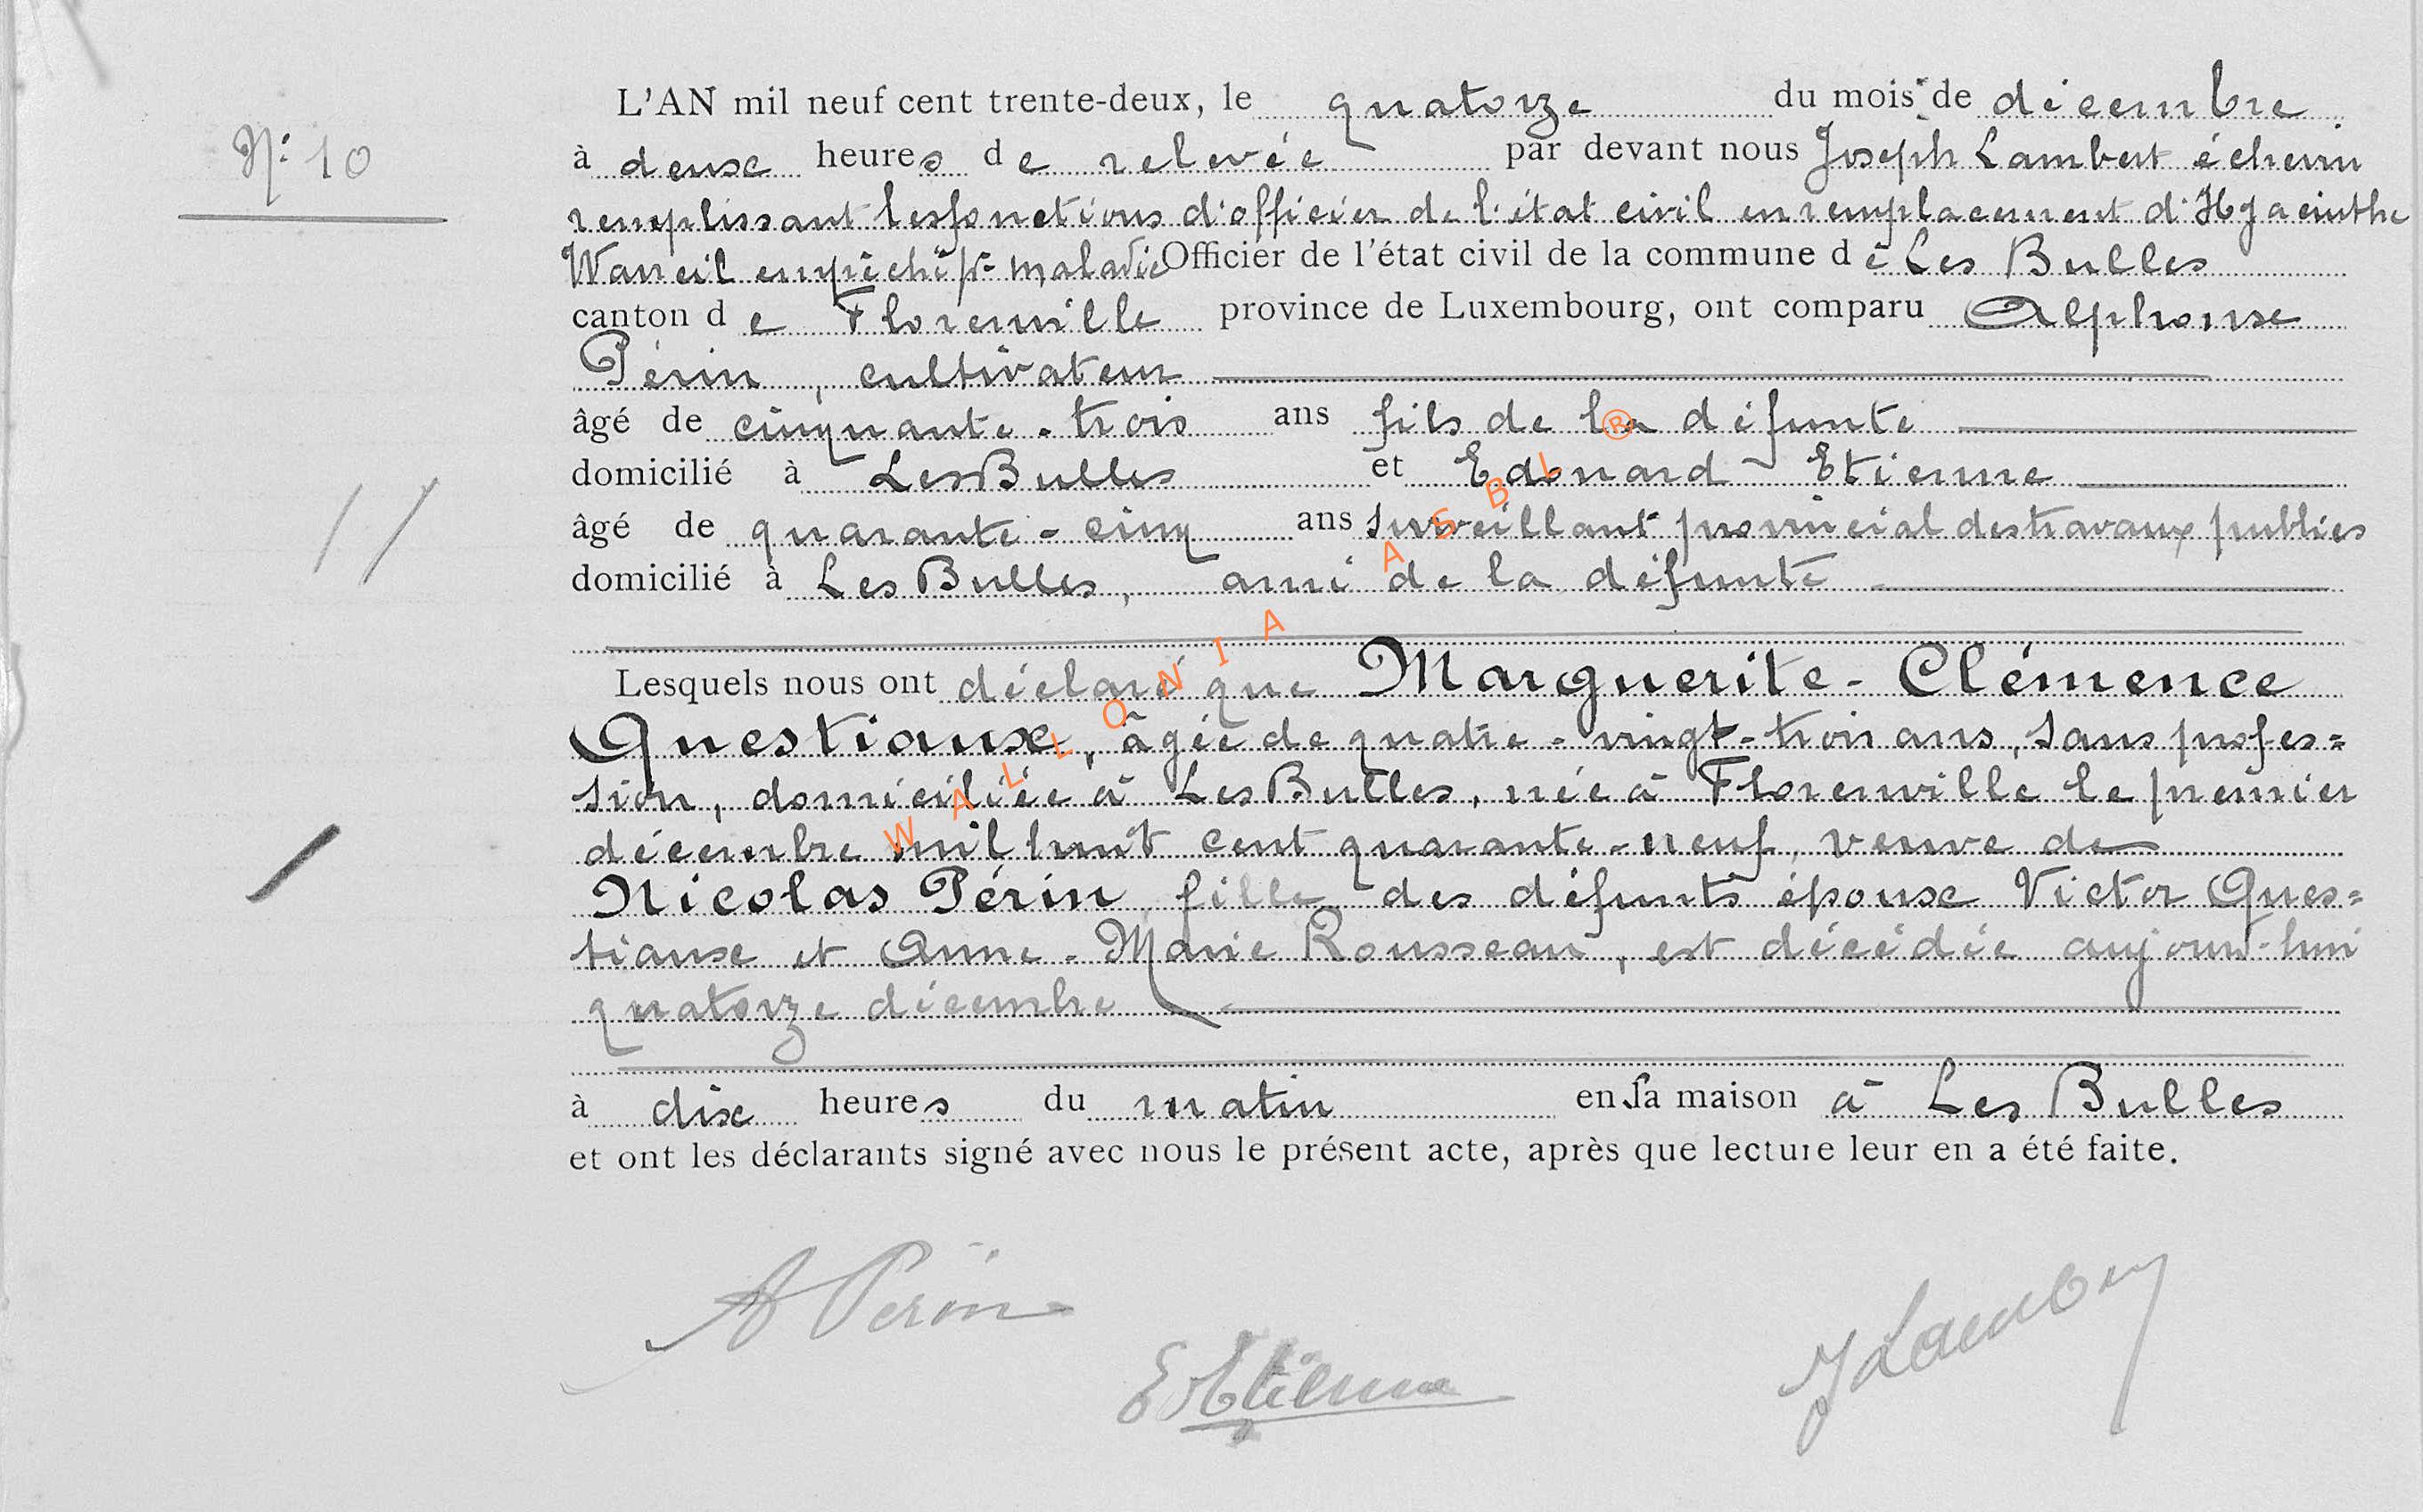 N: 10
L'AN mil neuf cent trente-deux, le quatorze du mois de décembre
à deux heures de relevée par devant nous Joseph Lambert échevin
remplissant les fonctions d'officier de l'état civil en remplacement d'Hyacinthe
empêché pr maladie Officier de l'état civil de la commune de Les Bulles
canton de Florenville province de Luxembourg, ont comparu Alphonse
Périn, cultivateur
âgé de cinquante-trois ans fils de la défunte
domicilié à Les Bulles et Edouard Etienne
âgé de quarante-cinq ans surveillant provincial des travaux publics
domicilié à Les Bulles, ami de la défunte
Lesquels nous ont déclaré que Marguerite-Clémence
Questiaux, âgée de quatre-vingt-trois ans, sans profes=
sion, domiciliée à Les Bulles, née à Florenville le premier
décembre mil huit cent quarante-neuf, veuve de
Nicolas Périn, fille des défunts époux Victor Ques=
tiaux et Anne-Marie Rousseau, est décédée aujourd'hui
quatorze décembre
à dix heures du matin en sa maison à Les Bulles
et ont les déclarants signé avec nous le présent acte, après que lecture leur en a été faite.
A Périn
E Etienne
J Lambert
WALLONIA ASBL ®